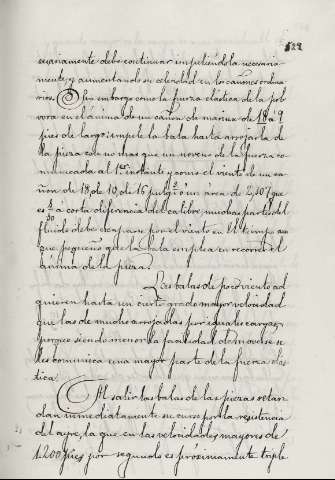 522
sariamente debe continuar impeliendola necesaria-
mente, y aumentando su celeridad en los cañones ordina-
rios. Sin embargo como la fuerza elastica de la pol
vora en el anima de un cañon de marina de 18 á 9
pies de largo impele la bala hasta arrojarla de
la pieza con no mas que un noveno de la fuerza co
municada al 1er instante y como el viento de un ca
ñon de 18 de 10 de 16 pulgs. o un area de 2,407 que
es á corta diferencia del calibre muchas partes del
fluido debe escaparse por el viento en el tiempo aun
que pequeño que la bala emplea en recorrer el
ánima de la pieza.
Las balas de poco viento ad
quieren hasta un cierto grado mayor velocidad
que las de mucho arrojadas por iguales cargas,
porque siendo menor la facilidad de moverse se
les comunica una mayor parte de la fuerza elas
tica.
Al salir las balas de las piezas retar
dan inmediatamente su curso por la resistencia
del ayre, la que en las velocidades mayores de
1200 pies por segundo es próximamente triple